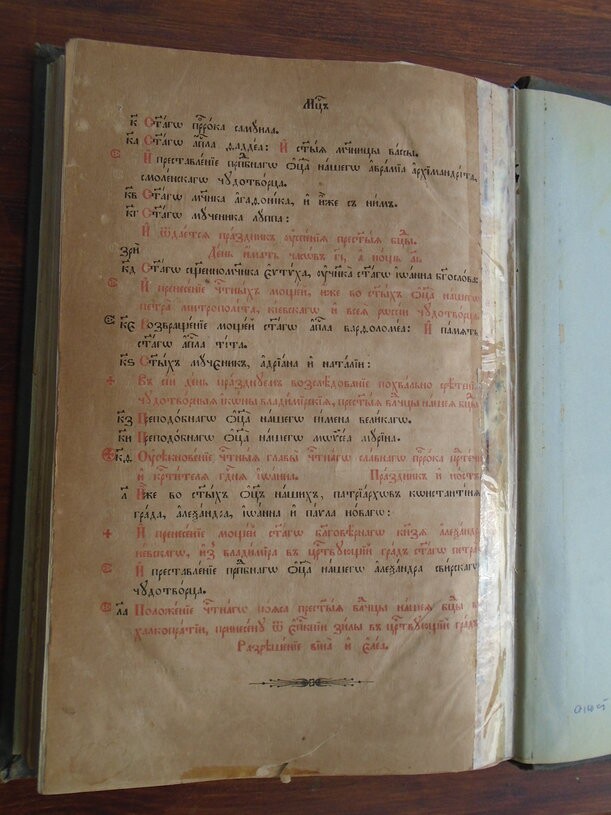 Мц҃ъ
к҃ Ст҃а́гѡ прⷪ҇ро́ка самꙋи́ла.
к҃а Ст҃а́гѡ а҆пⷭ҇ла ѳаддє́а: И҆ ст҃ы́ѧ мч҃ницы ва́ссы.
И҆ преставле́нїе прпⷣбнагѡ ѻ҆ц҃а̀ на́шегѡ а҆вра́мїа а҆рхїмандрі́та,
смоле́нскагѡ чꙋдотво́рца.
к҃в Ст҃а́гѡ мч҃ника а҆гаѳо́ника, и҆ и҆̀же съ ни́мъ.
к҃г Ст҃а́гѡ мꙋ́ченика лꙋ́ппа:
И҆ ѿдае́тсѧ пра́здникъ ᲂу҆спе́нїѧ прест҃ы́ѧ бцⷣы.
зри́ День и҆́мать часѡ́въ г҃і, а҆ но́щь а҃і.
к҃д Ст҃а́гѡ сщ҃енномч҃ника є҆ѵтѷ́ха, ᲂу҆чн҃ка̀ ст҃а́гѡ і҆ѡа́нна бг҃осло́ва:
И҆ пренесе́нїе чтⷭ҇ны́хъ моще́й, и҆́же во ст҃ы́хъ ѻ҆ц҃а̀ на́шегѡ
петра̀ митрополі́та, кі́евскагѡ и҆ всеѧ̀ рѡссі́и чꙋдотво́рца
к҃є Возвраще́нїе моще́й ст҃а́гѡ а҆пⷭ҇ла варѳоломе́а: И҆ па́мѧть
ст҃а́гѡ а҆пⷭ҇ла ті́та.
к҃ѕ Ст҃ы́хъ мꙋ́ченикъ, а҆дрїа́на и҆ ната́лїи:
Въ се́й де́нь пра́зднꙋемъ возслѣ́дованїе похва́льно срѣ́тенїѧ
чꙋдотво́рныѧ і҆кѡ́ны влади́мірскїѧ, прест҃ы́ѧ влⷣчцы на́шеѧ бцⷣы
к҃з Преподо́бнагѡ ѻ҆ц҃а̀ на́шегѡ пі́мена вели́кагѡ.
к҃и Преподо́бнагѡ ѻ҆ц҃а̀ на́шегѡ мѡѷсе́а мꙋ́рина.
к҃ѳ Оу҆сѣкнове́нїе чтⷭ҇ны́ѧ главы̀ чтⷭ҇на́гѡ сла́внагѡ прⷪ҇ро́ка прⷣте́чи
и҆ крⷭ҇ти́телѧ гдⷭ҇нѧ і҆ѡа́нна. Пра́здникъ и҆ по́стъ
л҃ И҆̀же во ст҃ы́хъ ѻ҆тє́цъ на́шихъ, патрїа́рхѡвъ кѡнстанті́нѧ
гра́да, а҆леѯа́ндра, і҆ѡа́нна и҆ па́ѵла но́вагѡ:
И҆ пренесе́нїе моще́й ст҃а́гѡ благовѣ́рнагѡ кнѧ́зѧ а҆леѯа́ндра
не́вскагѡ, и҆з̾ влади́міра въ црⷭ҇твꙋющїй гра́дъ ст҃а́гѡ петра̀
И҆ преставле́нїе прпⷣбнагѡ ѻ҆ц҃а̀ на́шегѡ а҆леѯа́ндра сви́рскагѡ
чꙋдотво́рца.
л҃а Положе́нїе чтⷭ҇на́гѡ по́ѧса прест҃ы́ѧ влⷣчцы на́шеѧ бцⷣы в
халкопраті́и, принесенꙋ̀ ѿ є҆пⷭ҇кпі́и зи́лы въ црⷭ҇твꙋющїй гра́дъ
Разрѣше́нїе вїна̀ и҆ є҆ле́а.